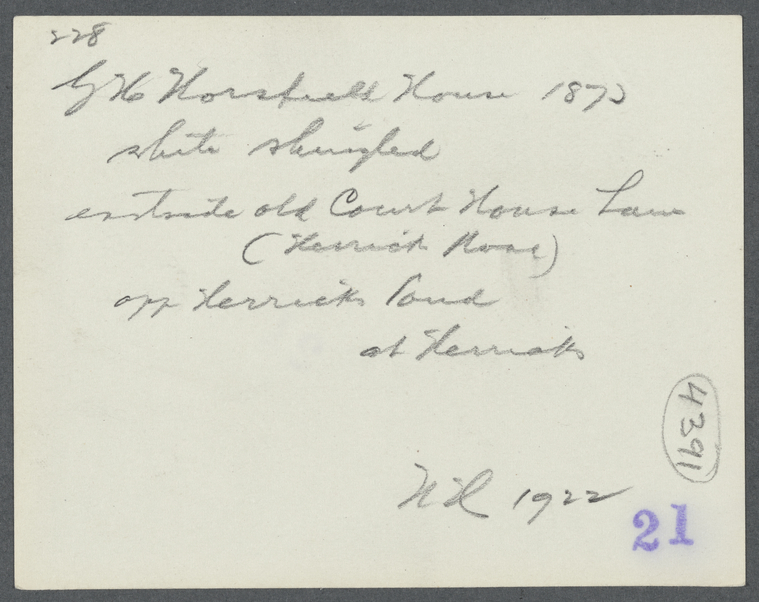 228
G H Horsfield House 1873
white shingled
eastside old Court House Lane
(Herrick Road)
opp Herricks Pond
at Herricks
4391
1922
21